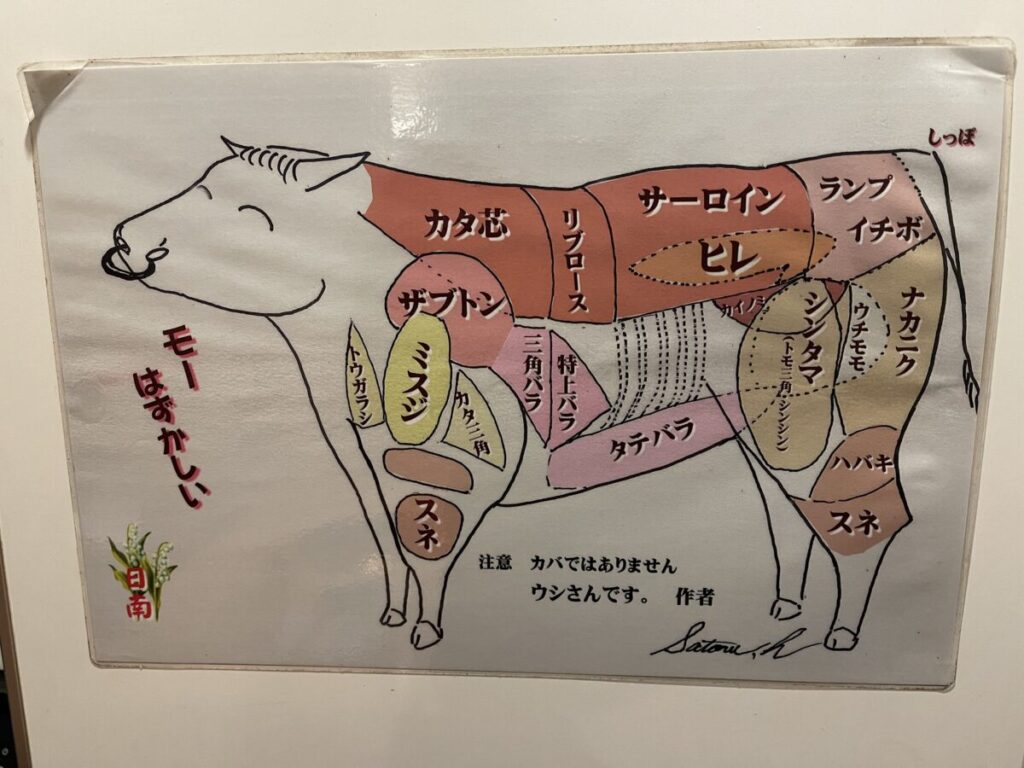 しっぽ
カタ芯
リブロース
サーロイン
ヒレ
ランプ
イチボ
ザブトン
カイノミ
シンタマ
(トモ三角シンシン)
ウチモモ
ナカニク
トウガラシ
ミスジ
カタ三角
三角バラ
特上バラ
タテバラ
ハバキ
スネ
スネ
モー
はずかしい
日南
注意 カバではありません
ウシさんです。 作者
Satoru.h